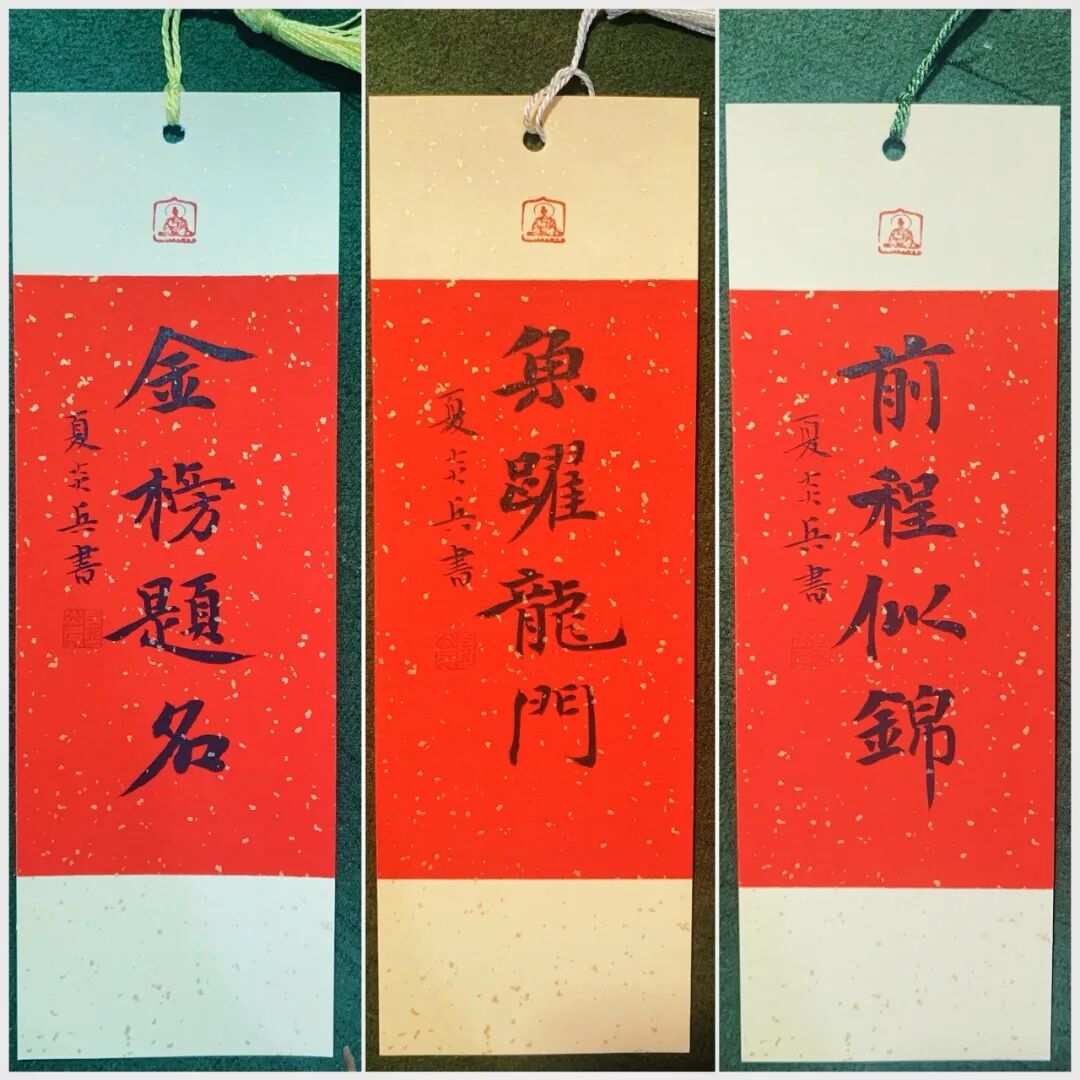 金榜題名
夏炎兵書
魚躍龍門
夏炎兵書
前程似錦
夏炎兵書